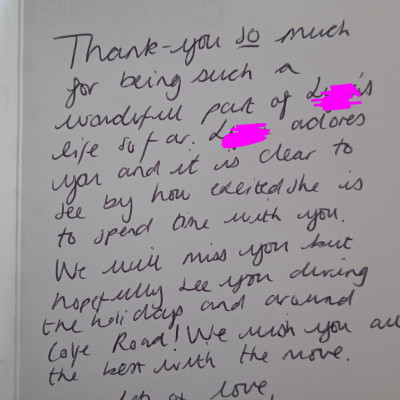 Thank-you so much
for being such a
wonderful part of L 's
life so far. L adores
you and it is clear to
see by how excited she is
to spend time with you.
We will miss you but
hopefully see you during
the holidays and around
Road! We wish you all
the best with the move.
love,